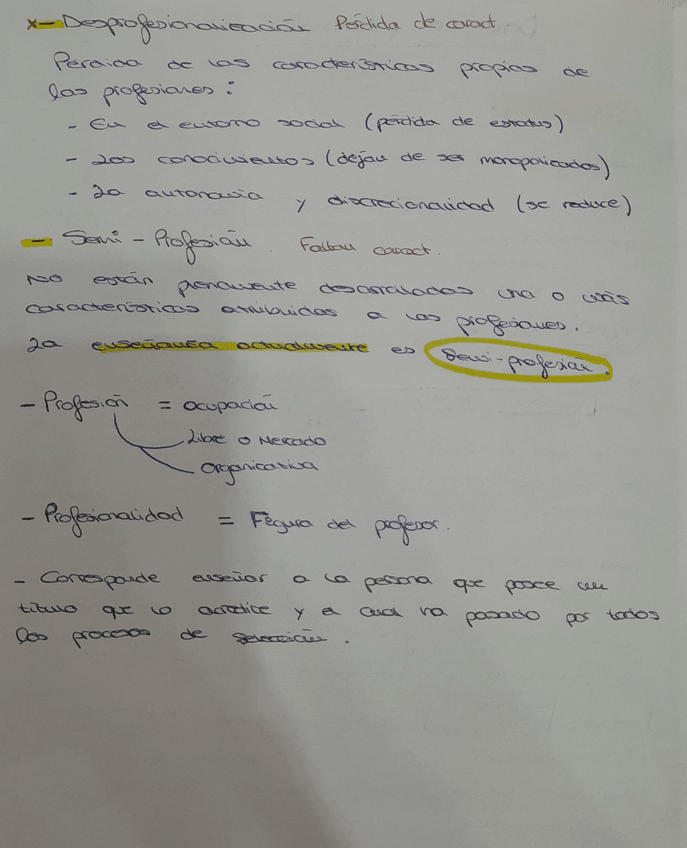 x- Desprofesionalización Pérdida de caract
Pérdida de las características propias de
las profesiones:
- En el entorno social (pérdida de estatus)
- Los conocimientos (dejan de ser monopolizados)
- La autonomía y discrecionalidad (se reduce)
- Semi-Profesión. Faltan caract.
No están plenamente desarrolladas una o más
características atribuidas a las profesiones.
La enseñanza actualmente es Semi-profesión.
- Profesión = ocupación
Libre o Mercado
Organizativa
- Profesionalidad = Figura del profesor.
- Corresponde enseñar a la persona que posee un
título que lo acredite y el cual ha pasado por todos
los procesos de selección.